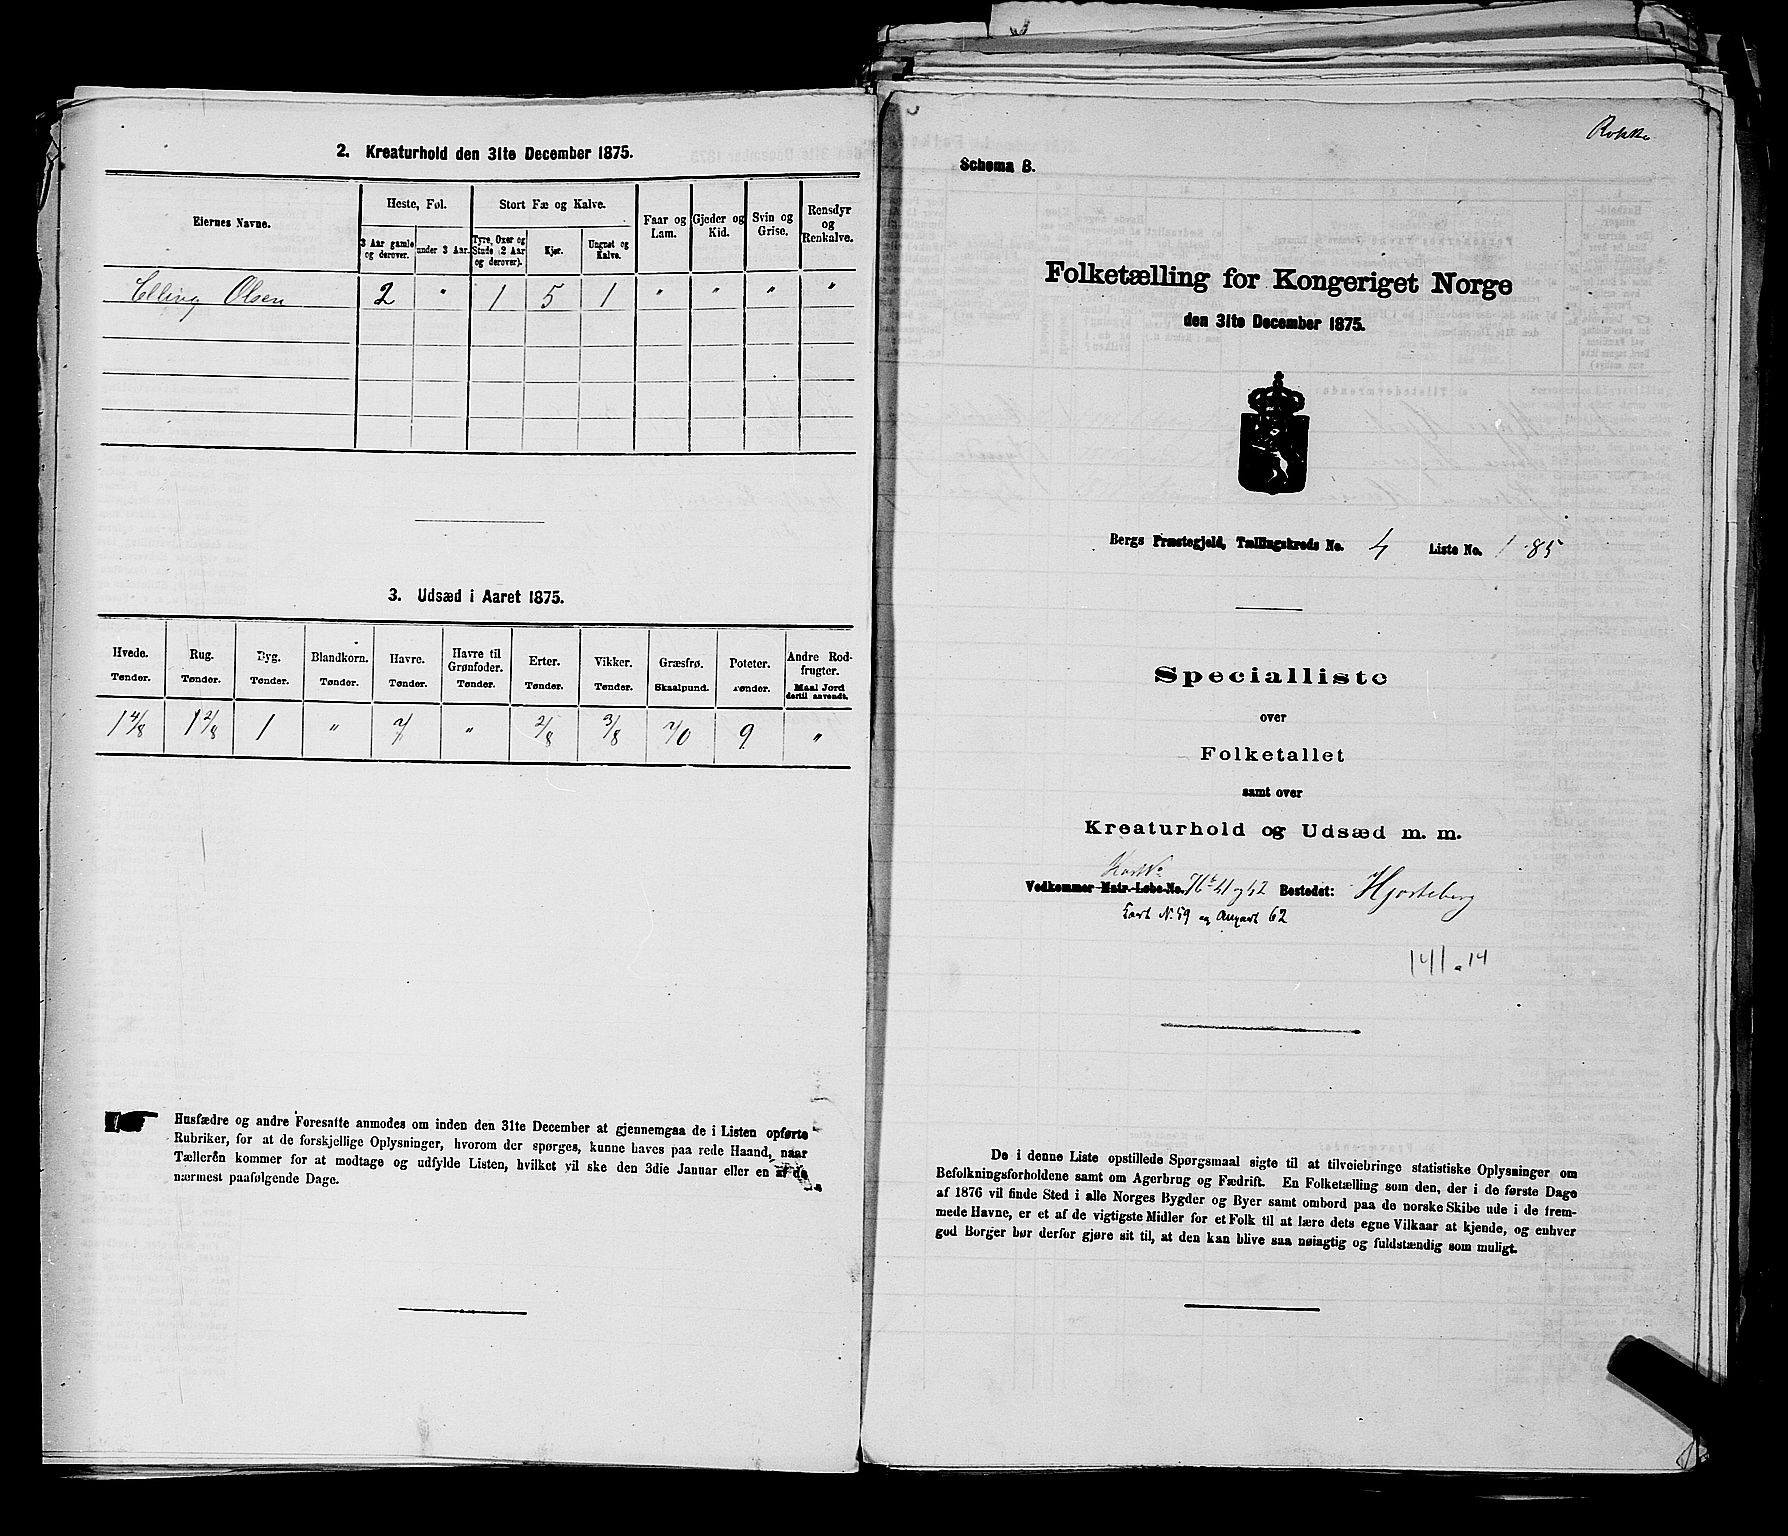 2. Kreaturhold den 31te December 1875.
Eiernes Navne.
Heste, Føl.
Stort Fæ og Kalve.
Faar og Lam.
Gjeder og Kid.
Svin og Grise.
Rensdyr og Renkalve.
3 Aar gamle og derover.
under 3 Aar.
Tyre, Oxer og Stude (2 Aar og derover).
Kjør.
Ungnøt og Kalve.
Elling Olsen 2 " 1 5 1 " " " "
3. Udsæd i Aaret 1875.
Hvede. Rug. Byg. Blandkorn. Havre. Havre til Grønfoder. Erter. Vikker. Græsfrø. Poteter. Andre Rodfrugter.
Tønder. Tønder. Tønder. Tønder. Tønder. Tønder. Tønder. Tønder. Skaalpund. Tønder. Maal Jord dertil anvendt.
1 4/8 1 2/8 1 " 7 " 2/8 3/8 70 9 "
Husfædre og andre Foresatte anmodes om inden den 31te December at gjennemgaa de i Listen opførte
Rubriker, for at de forskjellige Oplysninger, hvorom der spørges, kunne haves paa rede Haand, naar
Tælleren kommer for at modtage og udfylde Listen, hvilket vil ske den 3die Januar eller en af de
nærmest paafølgende Dage.
Rokke
Schema B.
Folketælling for Kongeriget Norge
den 31te December 1875.
Bergs Præstegjeld, Tællingskreds No. 4 Liste No. 185
Specialliste
over
Folketallet
samt over
Kreaturhold og Udsæd m. m.
Vedkommer Matr.-Løbe-No. Bostedet: Hjorteberg
141 a 14
De i denne Liste opstillede Spørgsmaal sigte til at tilveiebringe statistiske Oplysninger om
Befolkningsforholdene samt om Agerbrug og Fædrift. En Folketælling som den, der i de første Dage
af 1876 vil finde Sted i alle Norges Bygder og Byer samt ombord paa de norske Skibe ude i de frem-
mede Havne, er et af de vigtigste Midler for et Folk til at lære dets egne Vilkaar at kjende, og enhver
god Borger bør derfor gjøre sit til, at den kan blive saa nøiagtig og fuldstændig som muligt.